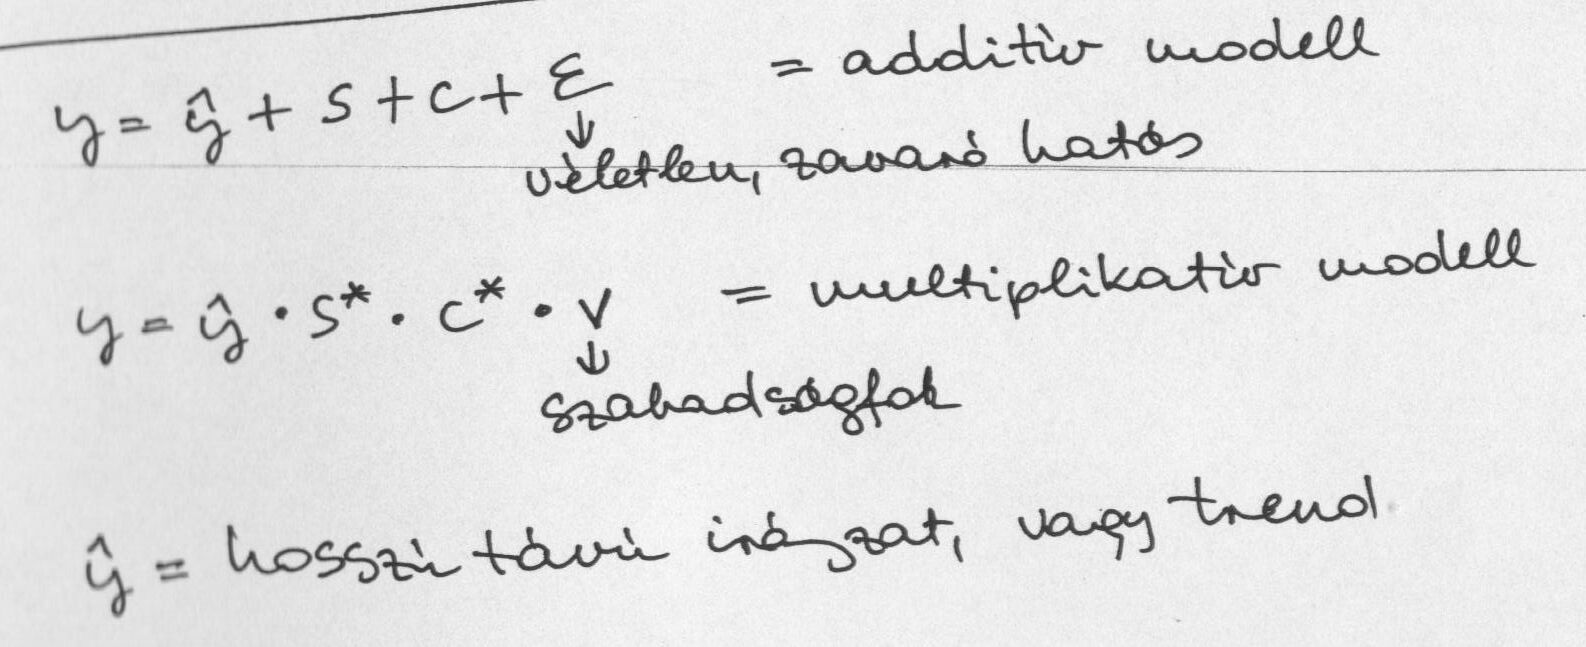 y = ŷ + s + c + ε = additív modell
↓
véletlen, zavaró hatás
y = ŷ · s* · c* · v = multiplikatív modell
↓
szabadságfok
ŷ = hosszú távú irányzat, vagy trend